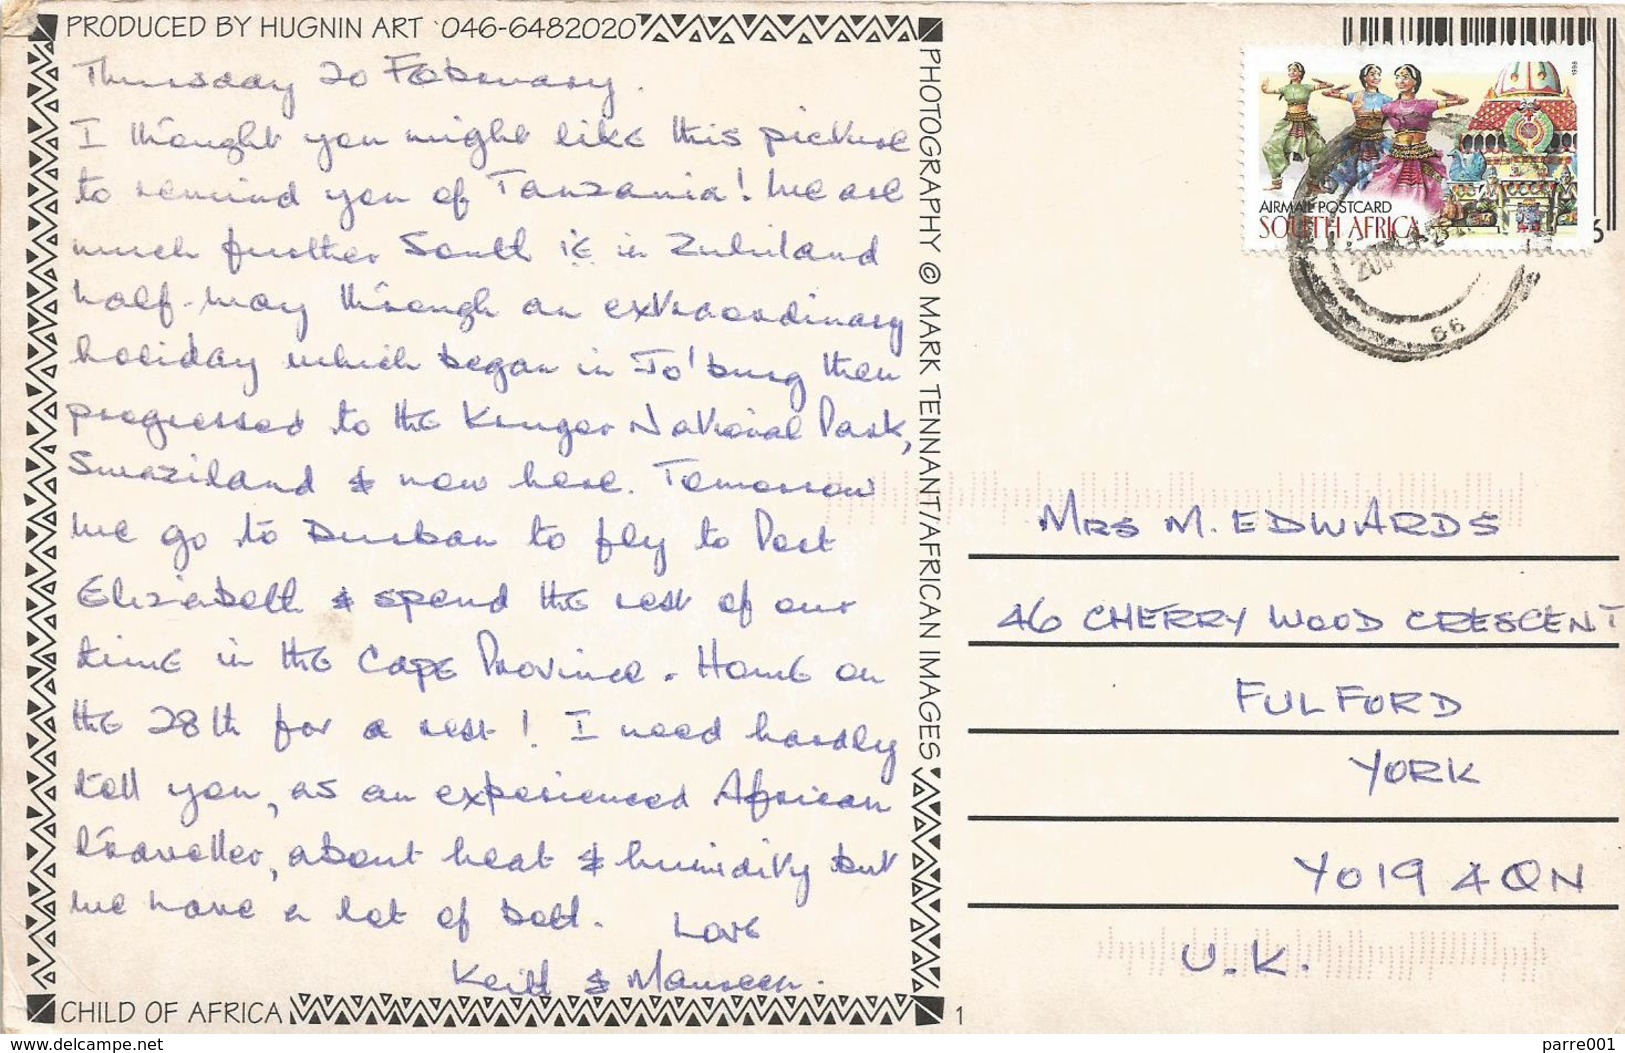 PRODUCED BY HUGNIN ART 046-6482020
Thursday 20 February.
I thought you might like this picture
to remind you of Tanzania! We are
much further South ie in Zululand
half-way through an extraordinary
holiday which began in Jo'burg then
progressed to the Kruger National Park,
Swaziland & now here. Tomorrow
we go to Durban to fly to Port
Elizabeth & spend the rest of our
time in the Cape Province. Home on
the 28th for a rest! I need hardly
tell you, as an experienced African
traveller, about heat & humidity but
we have a lot of both. Love
Keith & Maureen.
CHILD OF AFRICA
1
PHOTOGRAPHY © MARK TENNANT/AFRICAN IMAGES
1998
AIRMAIL POSTCARD
SOUTH AFRICA
6
B6
MRS M. EDWARDS
46 CHERRY WOOD CRESCENT
FULFORD
YORK
YO19 4QN
U.K.
www.delcampe.net
parre001